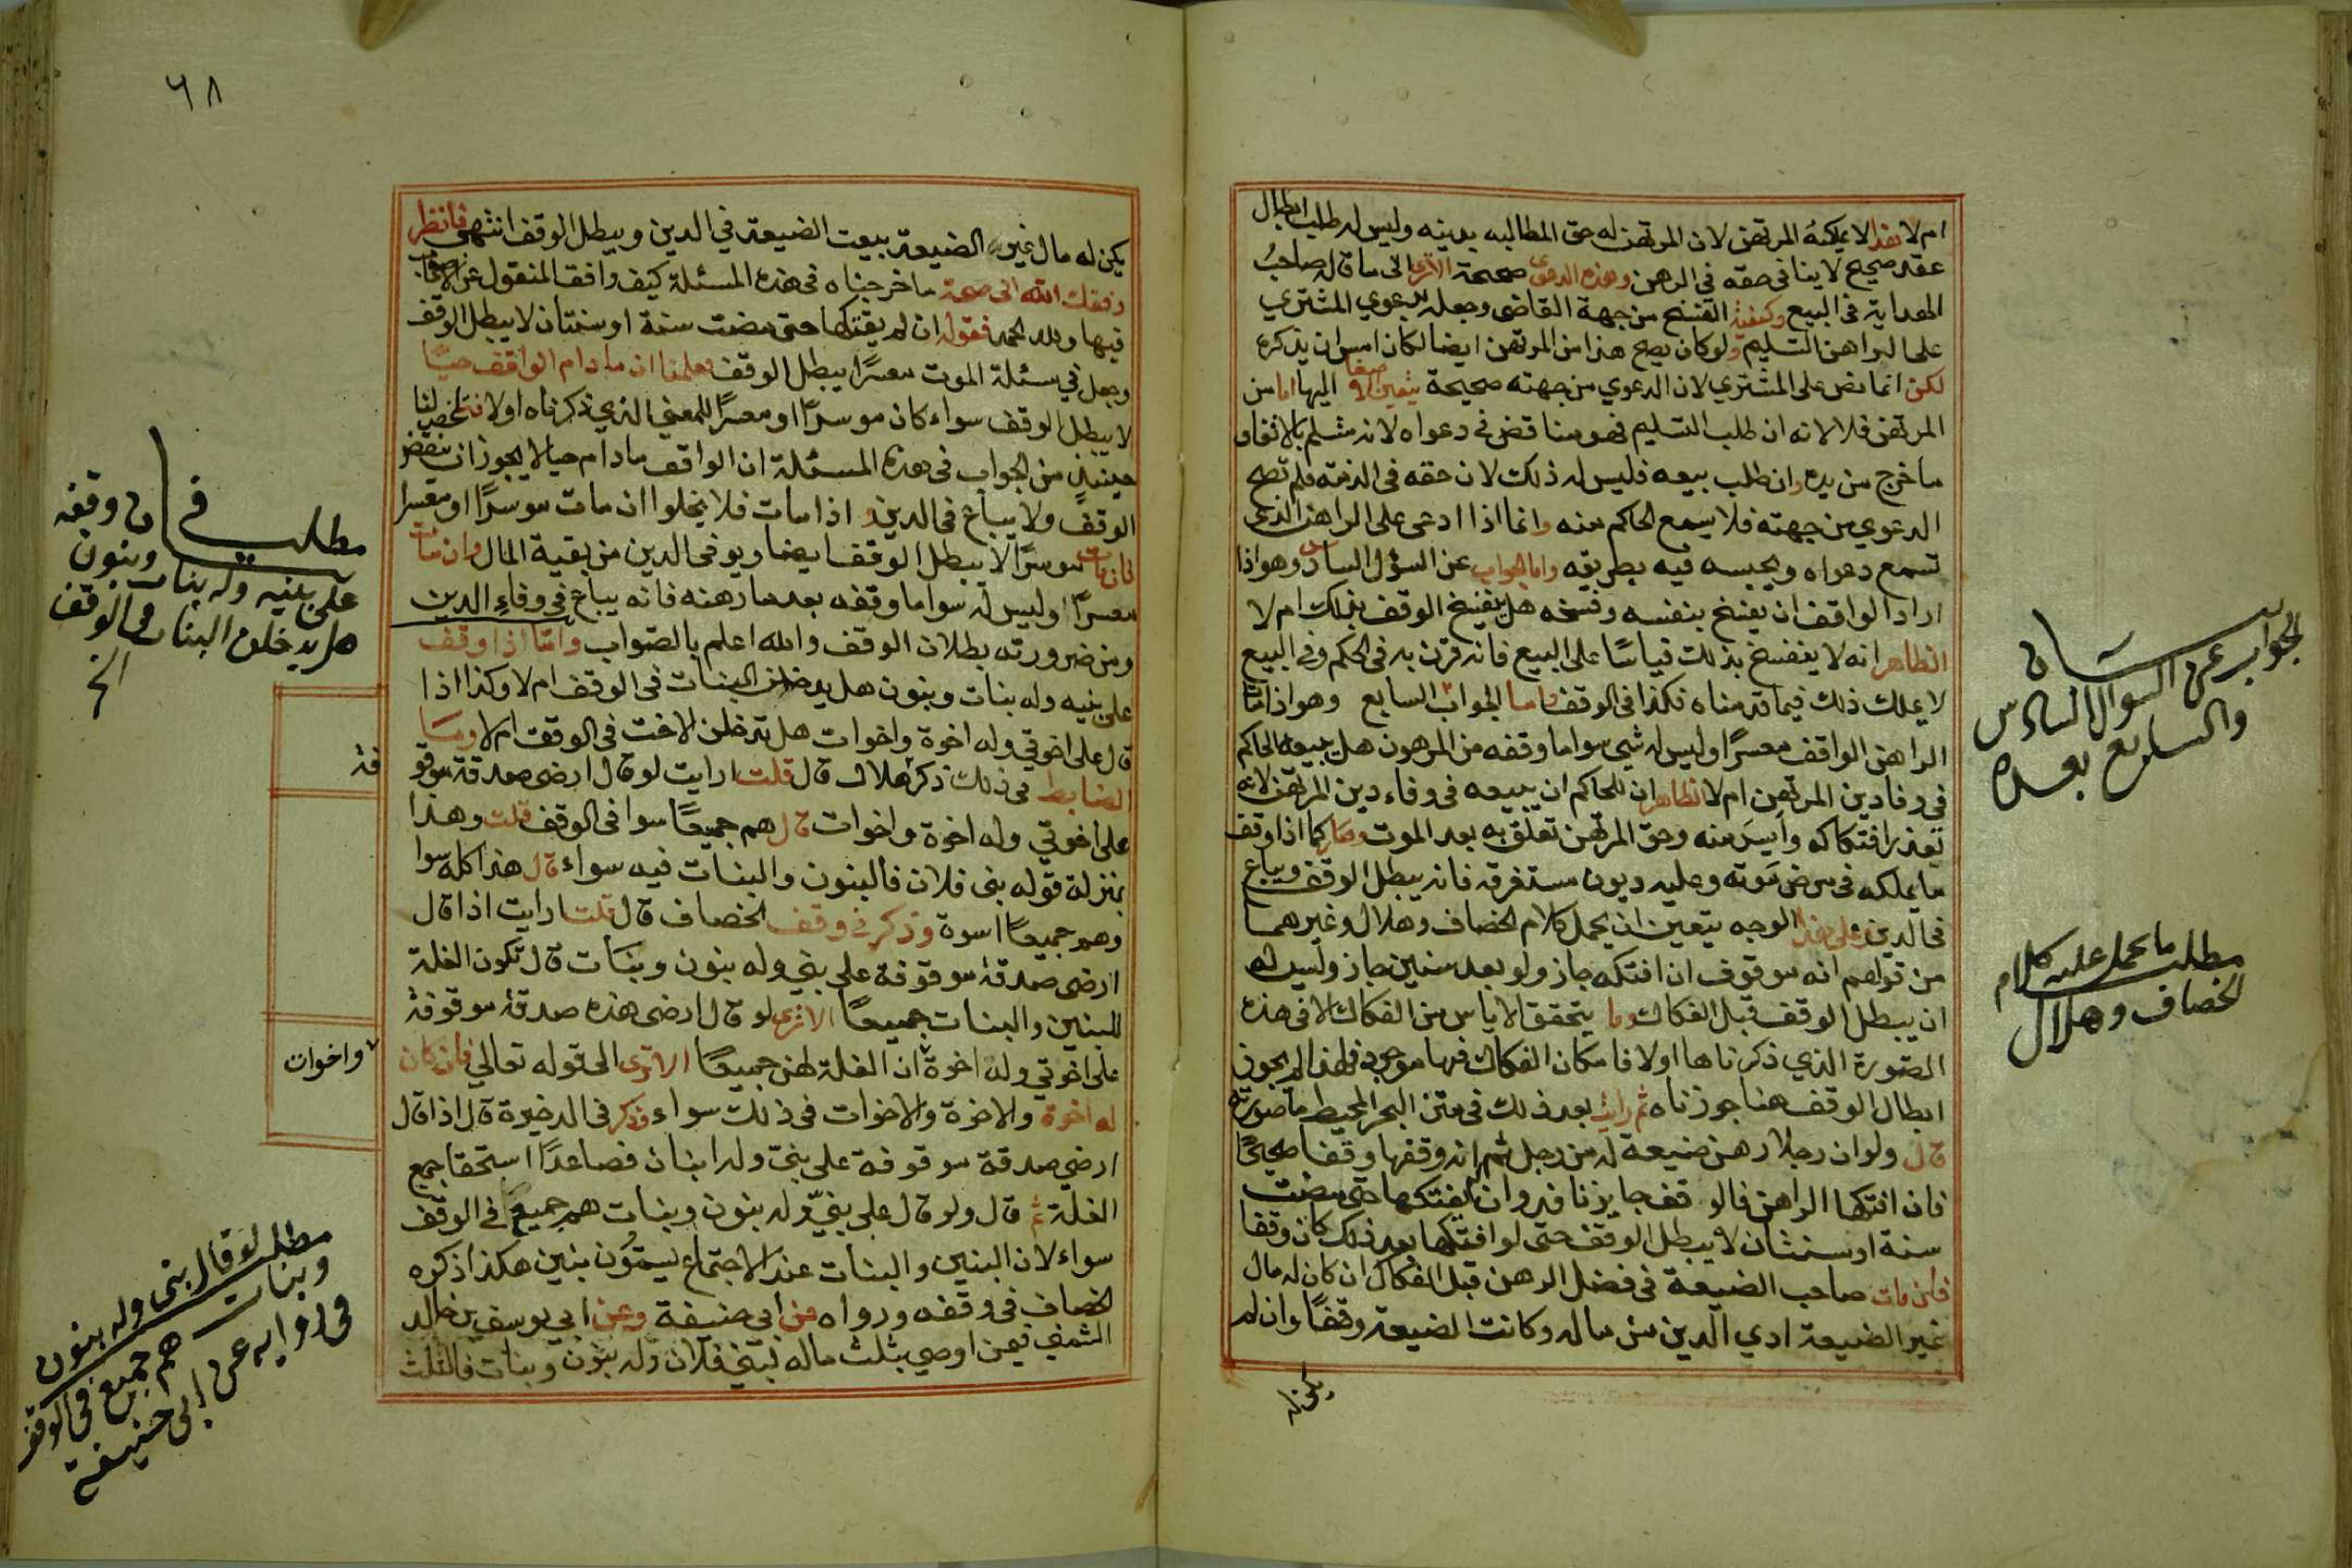 ام لا نقدا لا يمكنه المرتهن لان المرتهن له حق المطالبه بدينه وليس له طلب ابطال
عقد صحيح لا ينافى حقه فى الرهن وهذه الدعوى صحيحة الاترى الى ما قاله صاحب
الهداية فى البيع وكيفية الفسخ من جهة القاضى وجعله بدعوي المشتري
على الراهن التسليم ولو كان يصح هذا من المرتهن ايضا لكان امس ان يذكره
لكن انما نص على المشتري لان الدعوي من جهته صحيحة اليها اما من
المرتهن فلا لانه ان طلب التسليم فهو مناقض فى دعواه لانه مسلم بالاتفاق
ما خرج من يده وان طلب بيعه فليس له ذلك لان حقه فى الذمة فلم تصح
الدعوي من جهته فلا يسمع الحاكم منه وانما اذا ادعى على الراهن الذى
تسمع دعواه ويحبسه فيه بطريقه واما الجواب عن السؤل السادس وهو اذا
اراد الواقف ان يفسخ بنفسه وفسخه هل ينفسخ الوقف بذلك ام لا
الظاهر انه لا ينفسخ بذلك قياسًا على البيع فانه قرن به فى الحكم وفى البيع
لا يملك ذلك فيما قدمناه فكذا فى الوقف واما الجواب السابع وهو اذا مات
الراهن الواقف معسرًا وليس له شي سوا ما وقفه من المرهون هل يبيعه الحاكم
فى وفا دين المرتهن ام لا الظاهر ان للحاكم ان يبيعه فى وفاء دين المرتهن لانه
تعذر افتكاكه وايس منه وحق المرتهن تعلق به بعد الموت وصار كما اذا وقف
ما يملكه فى مرض موته وعليه ديون مستغرقه فانه يبطل الوقف ويباع
فى الدين وعلى هذا الوجه يتعين ان يحمل كلام الخصاف وهلال وغيرهما
من قولهم انه موقوف ان افتكه جاز ولو بعد سنين جاز وليس له
ان يبطل الوقف قبل الفكاك وما يتحقق الاياس من الفكاك الا فى هذه
الصورة الذي ذكرناها اولا فامكان الفكاك فيها موجود فلهذا لم يجوز
ابطال الوقف هنا جوزناه ثم رايت بعد ذلك فى متن البحر المحيط ما صورته
قال ولو ان رجلا رهن ضيعة له من رجل ثم انه وقفها وقفا صحيحًا
فان افتكها الراهن فالوقف جايز نافذ وان لم يفتكها حتى مضت
سنة او سنتان لا يبطل الوقف حتى لو افتكها بعد ذلك كان وقفا
فان مات صاحب الضيعة فى فضل الرهن قبل الفكاك ان كان له مال
غير الضيعة ادي الدين من ماله وكانت الضيعة وقفًا وان لم
يكن له
الجواب عن السوال السادس
والسابع بعده
مطلب ما يحمل عليه كلام
الخصاف وهلال
٦٨
يكن له مال غير الضيعة بيعت الضيعة في الدين ويبطل الوقف انتهى فانظر
وفقك الله الى صحة ما خرجناه فى هذه المسئلة كيف وافق المنقول عن الاصحاب
فيها ولله الحمد فقوله ان لم يفتكها حتى مضت سنة او سنتان لا يبطل الوقف
وجعل في مسئلة الموت معسرًا يبطل الوقف علمنا ان ما دام الواقف حيًا
لا يبطل الوقف سواء كان موسرًا او معسرًا للمعنى الذي ذكرناه اولا فتلخص لنا
حينيذٍ من الجواب فى هذه المسئلة ان الواقف ما دام حيا لا يجوز ان ينقض
الوقف ولا يباع فى الدين و اذا مات فلا يخلوا ان مات موسرًا او معسرا
فان مات موسرًا لا يبطل الوقف ايضا ويوفى الدين من بقية المال وان مات
معسرًا وليس له سوا ما وقفه بعد ما رهنه فانه يباع فى وفاء الدين
ومن ضرورته بطلان الوقف والله اعلم بالصّواب وامّا اذا وقف
على بنيه وله بنات وبنون هل يدخلن البنات فى الوقف ام لا وكذا اذا
قال على اخوتي وله اخوة واخوات هل تدخلن الاخت فى الوقف ام لا وما
الضابط فى ذلك ذكر هلال قال قلت ارايت لو قال ارضى صدقة موقو
على اخوتي وله اخوة واخوات قال هم جميعًا سوا فى الوقف قلت وهذا
بمنزلة قوله بنى فلان فالبنون والبنات فيه سواء قال هذا كله سوا
وهم جميعًا اسوة وذكر فى وقف الخصاف قال قلت ارايت اذا قال
ارضى صدقة موقوفة على بني وله بنون وبنات قال تكون الغلة
للبنين والبنات جميعًا الاترى لو قال ارضى هذه صدقة موقوفة
على اخوتي وله اخوة ان الغلة لهن جميعًا الاترى الى قوله تعالي فان كان
له اخوة والاخوة والاخوات فى ذلك سواء وذكر فى الدخيرة قال اذا قال
ارضي صدقة موقوفة على بنىّ وله ابنان فصاعدًا استحقا جميع
الغلة ثم قال ولو قال على بنيّ وله بنون وبنات هم جميعًا فى الوقف
سواء لان البنين والبنات عند الاجتماع يسمّون بنين هكذا ذكره
الخصاف فى وقفه ورواه عن ابى حنيفة وعن ابي يوسف بن خالد
السمتي فيمن اوصي بثلث ماله لبني فلان وله بنون وبنات فالثلث
مطلب فى ان وقفه
على بنيه وله بنات وبنون
هل يدخلن البنات فى الوقف
الخ
فة
واخوات
مطلب لو قال بنى وله بنون
وبنات هم جميع فى الوقف
فى رواية عن ابى حنيفة